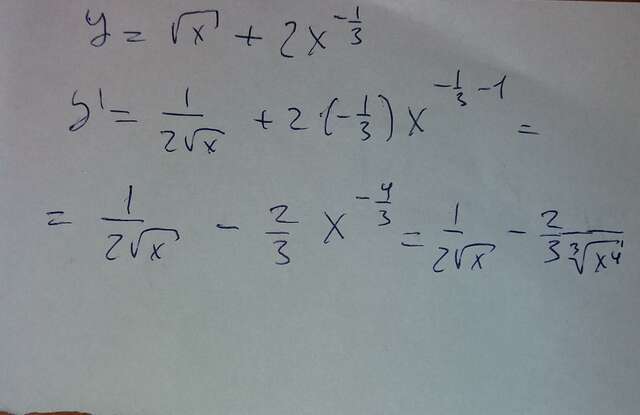 y = √x + 2x^(-1/3)
y' = 1/(2√x) + 2·(-1/3)x^(-1/3 - 1) =
= 1/(2√x) - 2/3 x^(-4/3) = 1/(2√x) - 2/(3∛(x⁴))